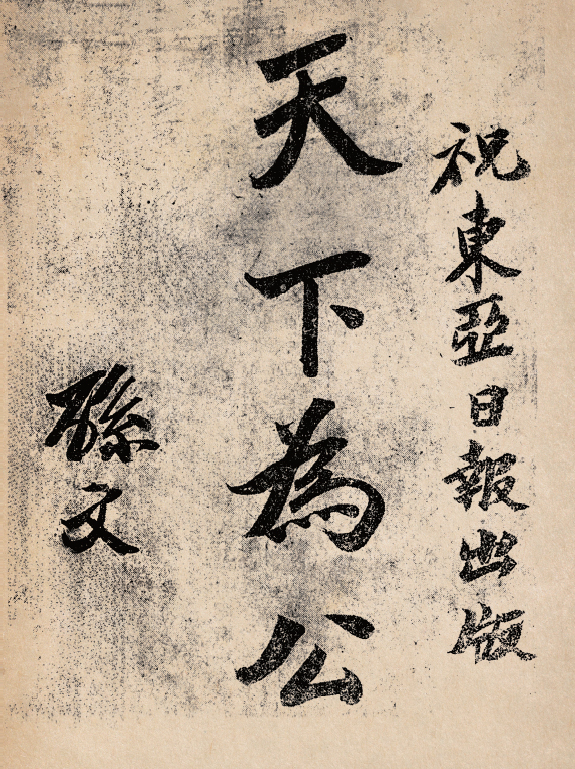 祝東亞日報出版
天下為公
孫文